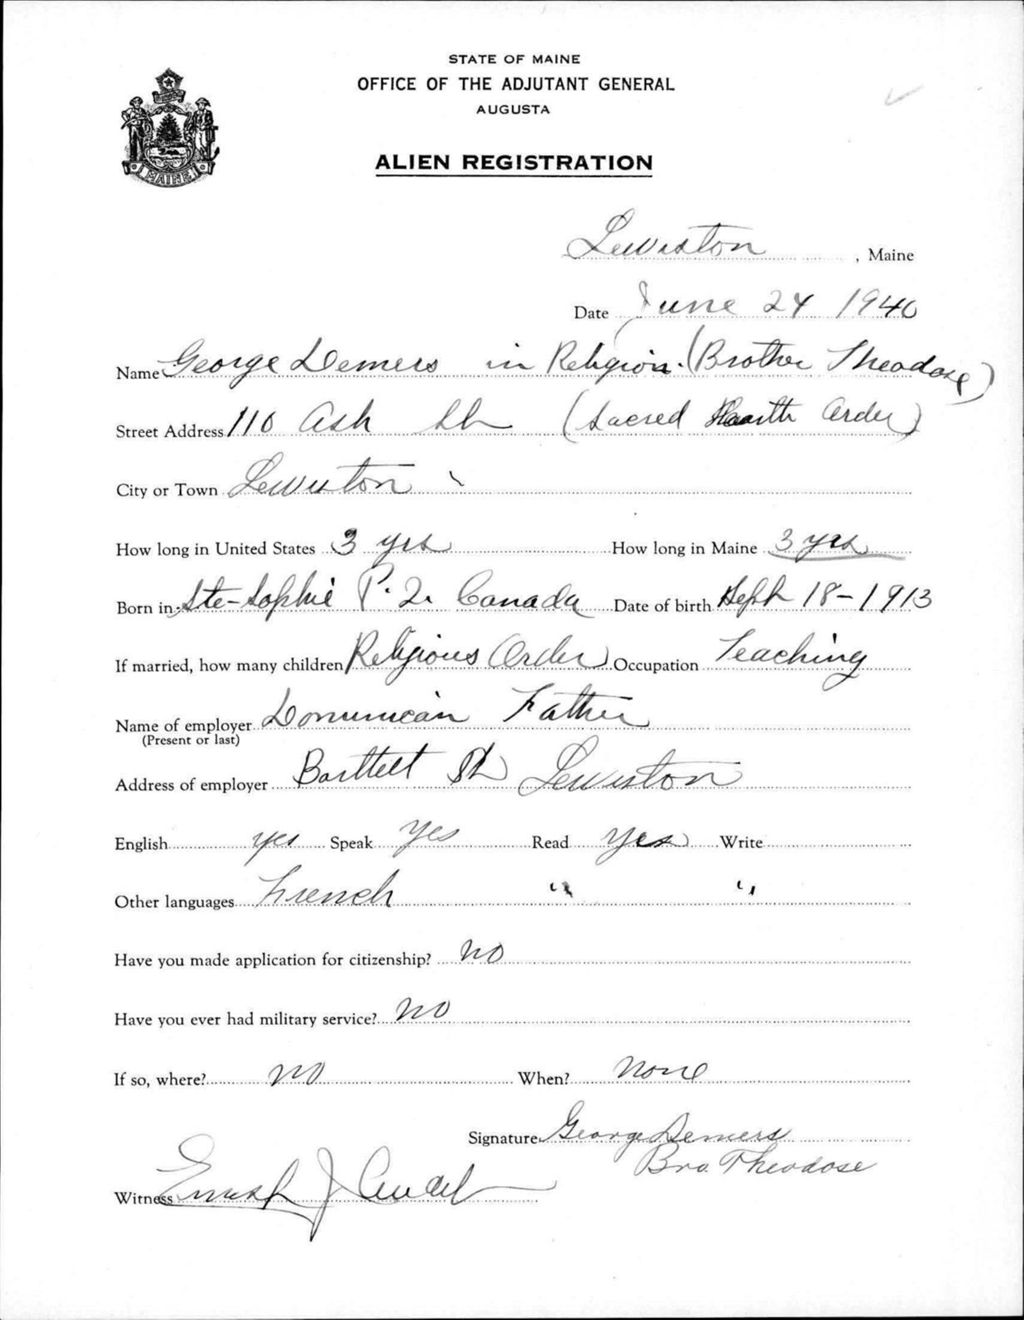 STATE OF MAINE
OFFICE OF THE ADJUTANT GENERAL
AUGUSTA
ALIEN REGISTRATION
MAINE
Lewiston, Maine
Date June 24 1940
Name George Demers in Religion. (Brother Theodose)
Street Address 110 Ash St (Sacred Order)
City or Town Lewiston
How long in United States 3 yrs How long in Maine 3 yrs
Born in Ste-Sophie P. Q. Canada Date of birth Sept 18-1913
If married, how many children Religious Order Occupation Teaching
Name of employer Dominican Father
(Present or last)
Address of employer Bartlett St Lewiston
English yes Speak Yes Read Yes Write
Other languages French " "
Have you made application for citizenship? NO
Have you ever had military service? NO
If so, where? NO When? None
Signature George Demers
Bro Theodose
Witness J